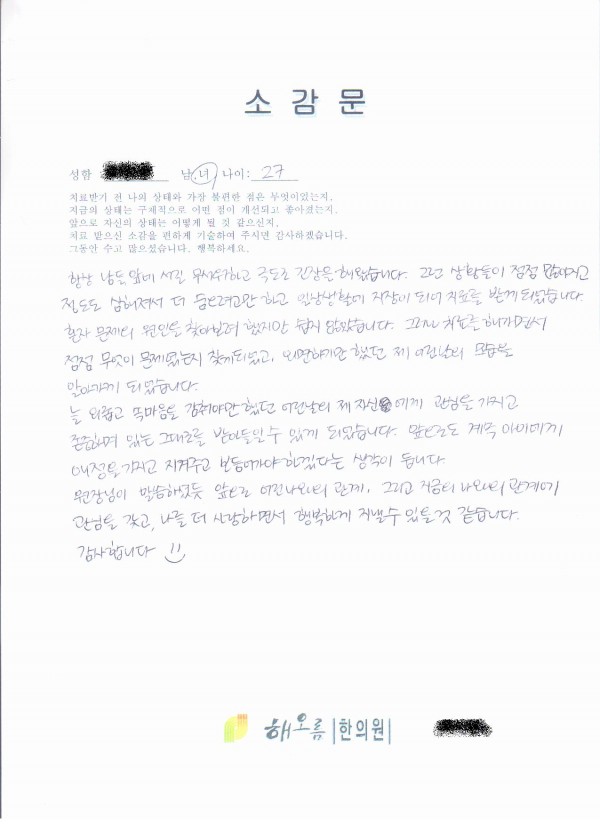 소 감 문
성함 : 남, 녀, 나이: 27
치료받기 전 나의 상태와 가장 불편한 점은 무엇이었는지,
지금의 상태는 구체적으로 어떤 점이 개선되고 좋아졌는지,
앞으로 자신의 상태는 어떻게 될 것 같으신지,
치료 받으신 소감을 편하게 기술하여 주시면 감사하겠습니다.
그동안 수고 많으셨습니다. 행복하세요.
항상 남들 앞에 서길 무서워하고 극도로 긴장을 해왔습니다. 그런 상황들이 점점 많아지고
정도도 심해져서 더 숨으려고만 하고 일상생활에 지장이 되어 치료를 받게 되었습니다.
혼자 문제의 원인을 찾아보려 했지만 쉽지 않았습니다. 그러나 치료를 해가면서
점점 무엇이 문제였는지 찾게되었고, 외면하기만 했던 제 어린날의 모습을
알아가게 되었습니다.
늘 외롭고 속마음을 감춰야만 했던 어린날의 제 자신에게 관심을 가지고
존중하며 있는 그대로를 받아들일 수 있게 되었습니다. 앞으로도 계속 아이에게
애정을 가지고 지켜주고 보듬어가야 하겠다는 생각이 듭니다.
원장님이 말씀하셨듯 앞으로 어린나와의 관계, 그리고 지금의 나와의 관계에
관심을 갖고, 나를 더 사랑하면서 행복하게 지낼수 있을것 같습니다.
감사합니다
해오름 한의원